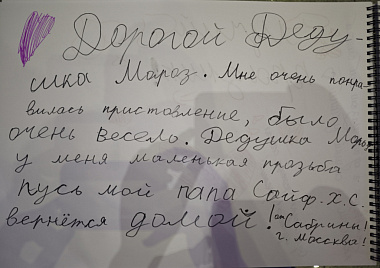 Дорогой Деду-
шка Мороз. Мне очень понра-
вилась приставление, было
очень весело. Дедушка Мороз
у меня маленькая прозьба
пусь мой папа Сайф. Х.С.
вернётся домой! от Сабрины!
г. Москва!